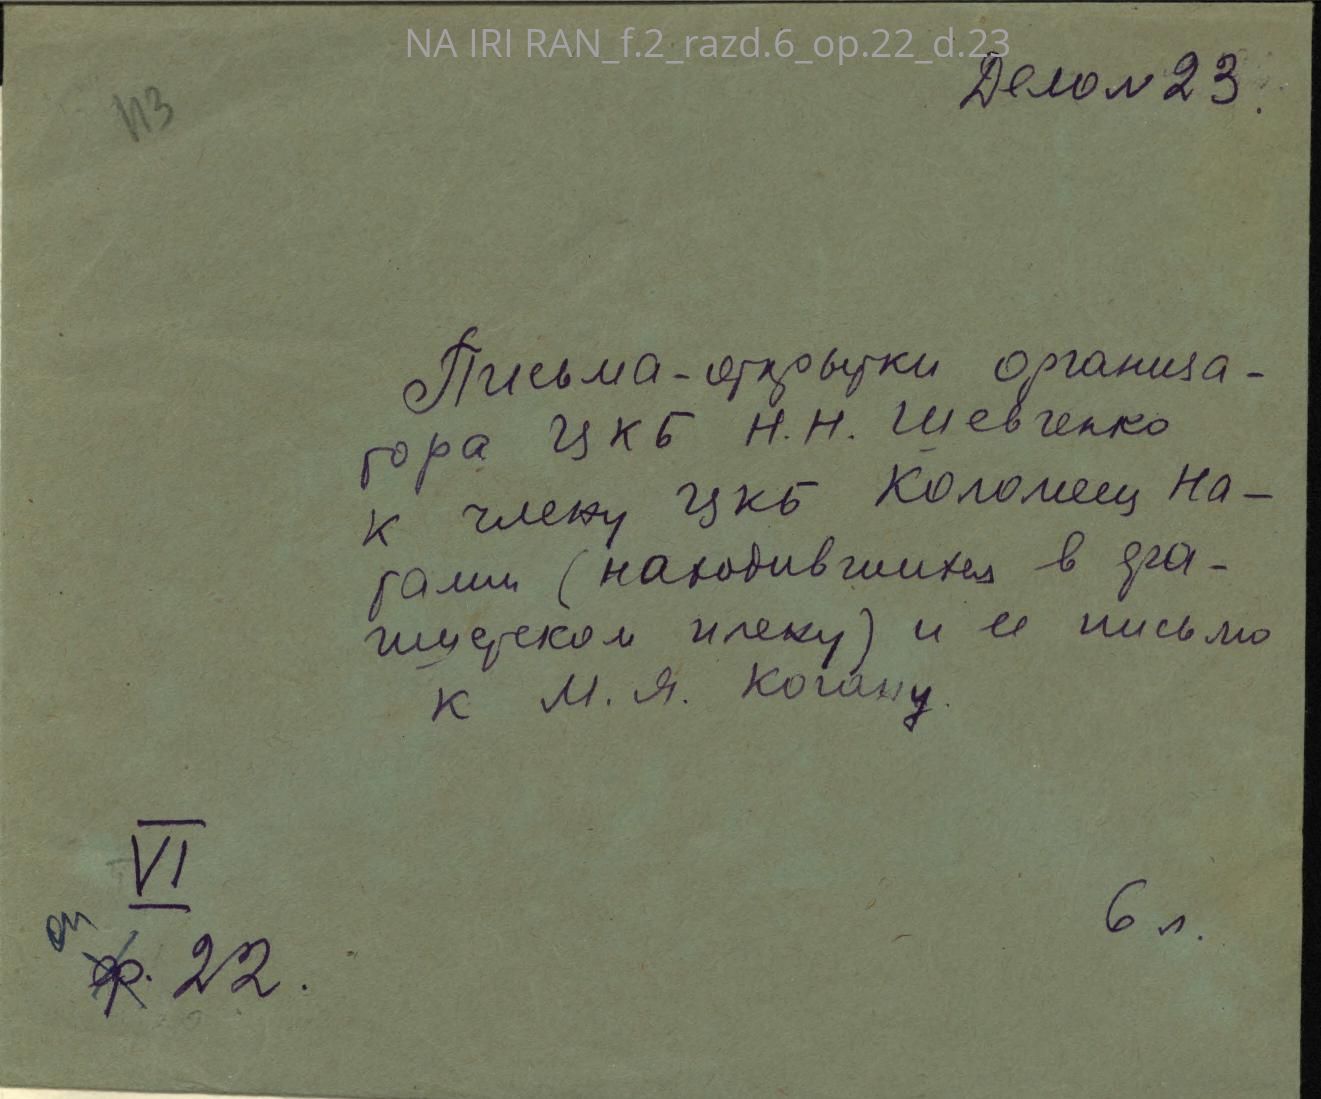 NA IRI RAN_f.2_razd.6_op.22_d.23
Дело № 23.
Письма-открытки организа-
тора ЦКБ Н.Н. Шевченко
к члену ЦКБ Коломеец На-
талии (находившихся в фа-
шистском плену) и ее письмо
к М.Я. Когану.
VI
оп
ф. 22.
6 л.